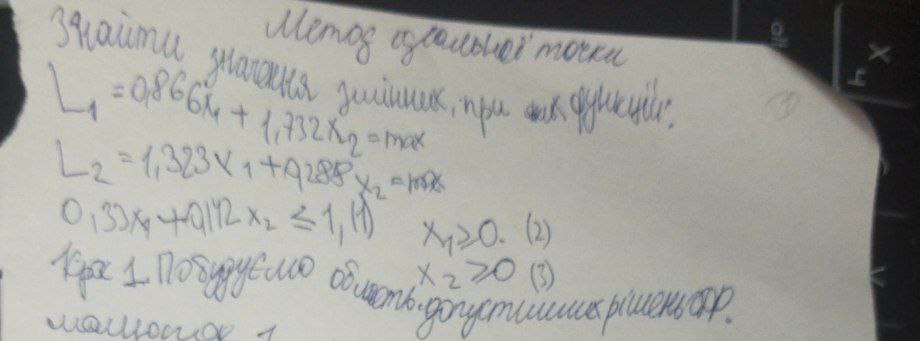 Метод ідеальної точки
Знайти значення змінних, при яких функції:
L₁ = 0,866x₁ + 1,732x₂ = max
L₂ = 1,323x₁ + 0,288x₂ = max
0,33x₁ + 0,142x₂ ≤ 1, (1)
x₁ ≥ 0. (2)
x₂ ≥ 0 (3)
Крок 1. Побудуємо область допустимих рішень ОДР.
малюнок 1